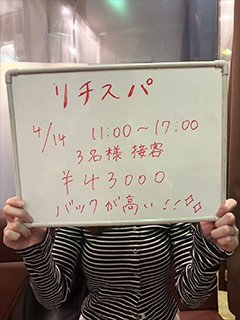 リチスパ
4/14 11:00～17:00
3名様 接客
¥43000
バックが高い!!